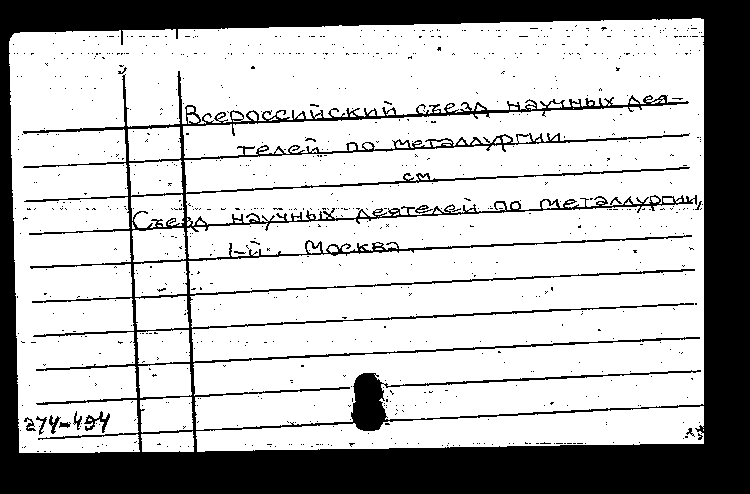 Всероссийский съезд научных дея-
телей по металлургии.
см.
Съезд научных деятелей по металлургии,
1-й. Москва.
274-494